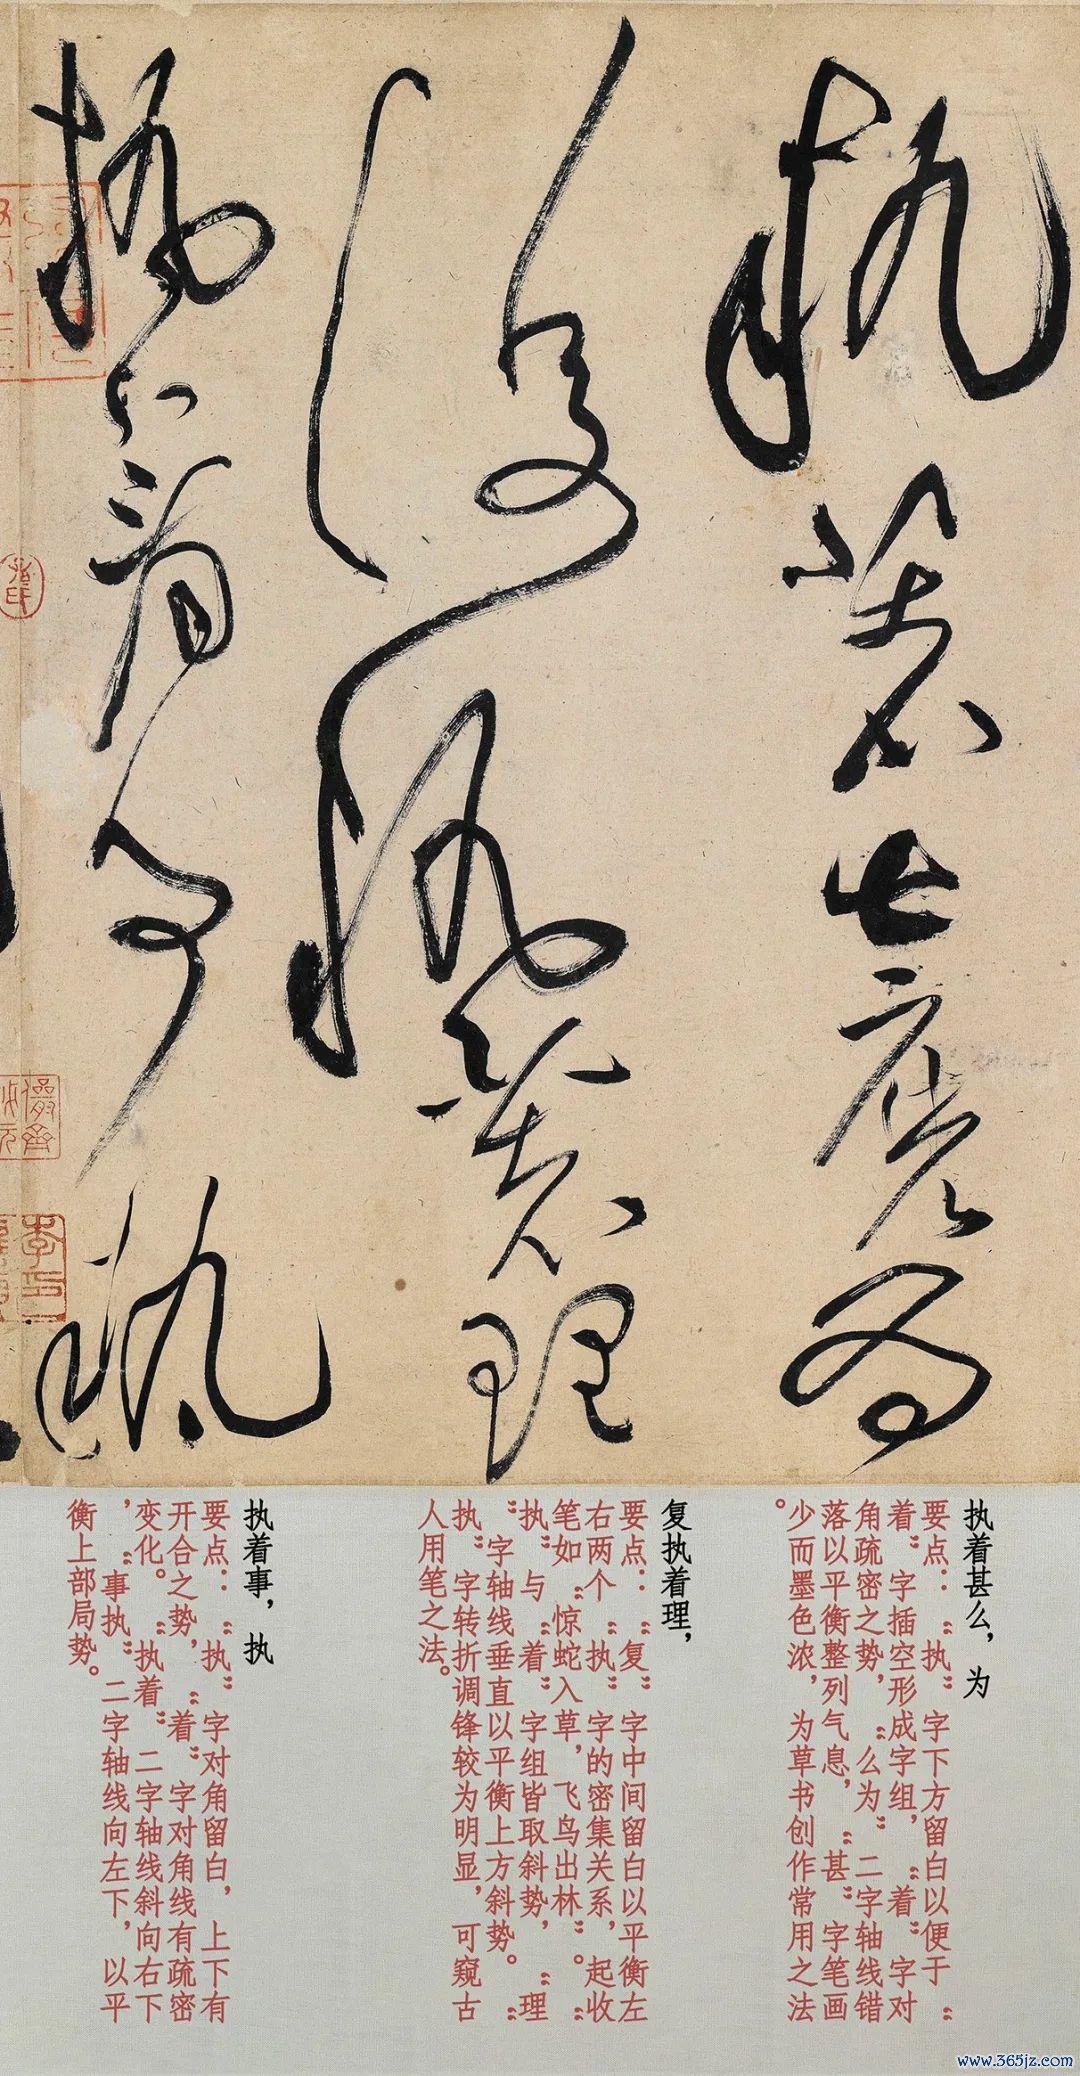 執著甚麼為
復執著理
執著事執
执着甚么，为
要点：“执”字下方留白以便于“
着”字插空形成字组，“着”字对
角疏密之势，“么为”二字轴线错
落以平衡整列气息，“甚”字笔画
少而墨色浓，为草书创作常用之法
。
复执着理，
要点：“复”字中间留白以平衡左
右两个“执”字的密集关系，起收
笔如“惊蛇入草，飞鸟出林”。“
执”与“着”字组皆取斜势，“理
”字轴线垂直以平衡上方斜势。“
执”字转折调锋较为明显，可窥古
人用笔之法。
执着事，执
要点：“执”字对角留白，上下有
开合之势，“着”字对角线有疏密
变化。“执着”二字轴线斜向右下
，“事执”二字轴线向左下，以平
衡上部局势。
www.365jz.com